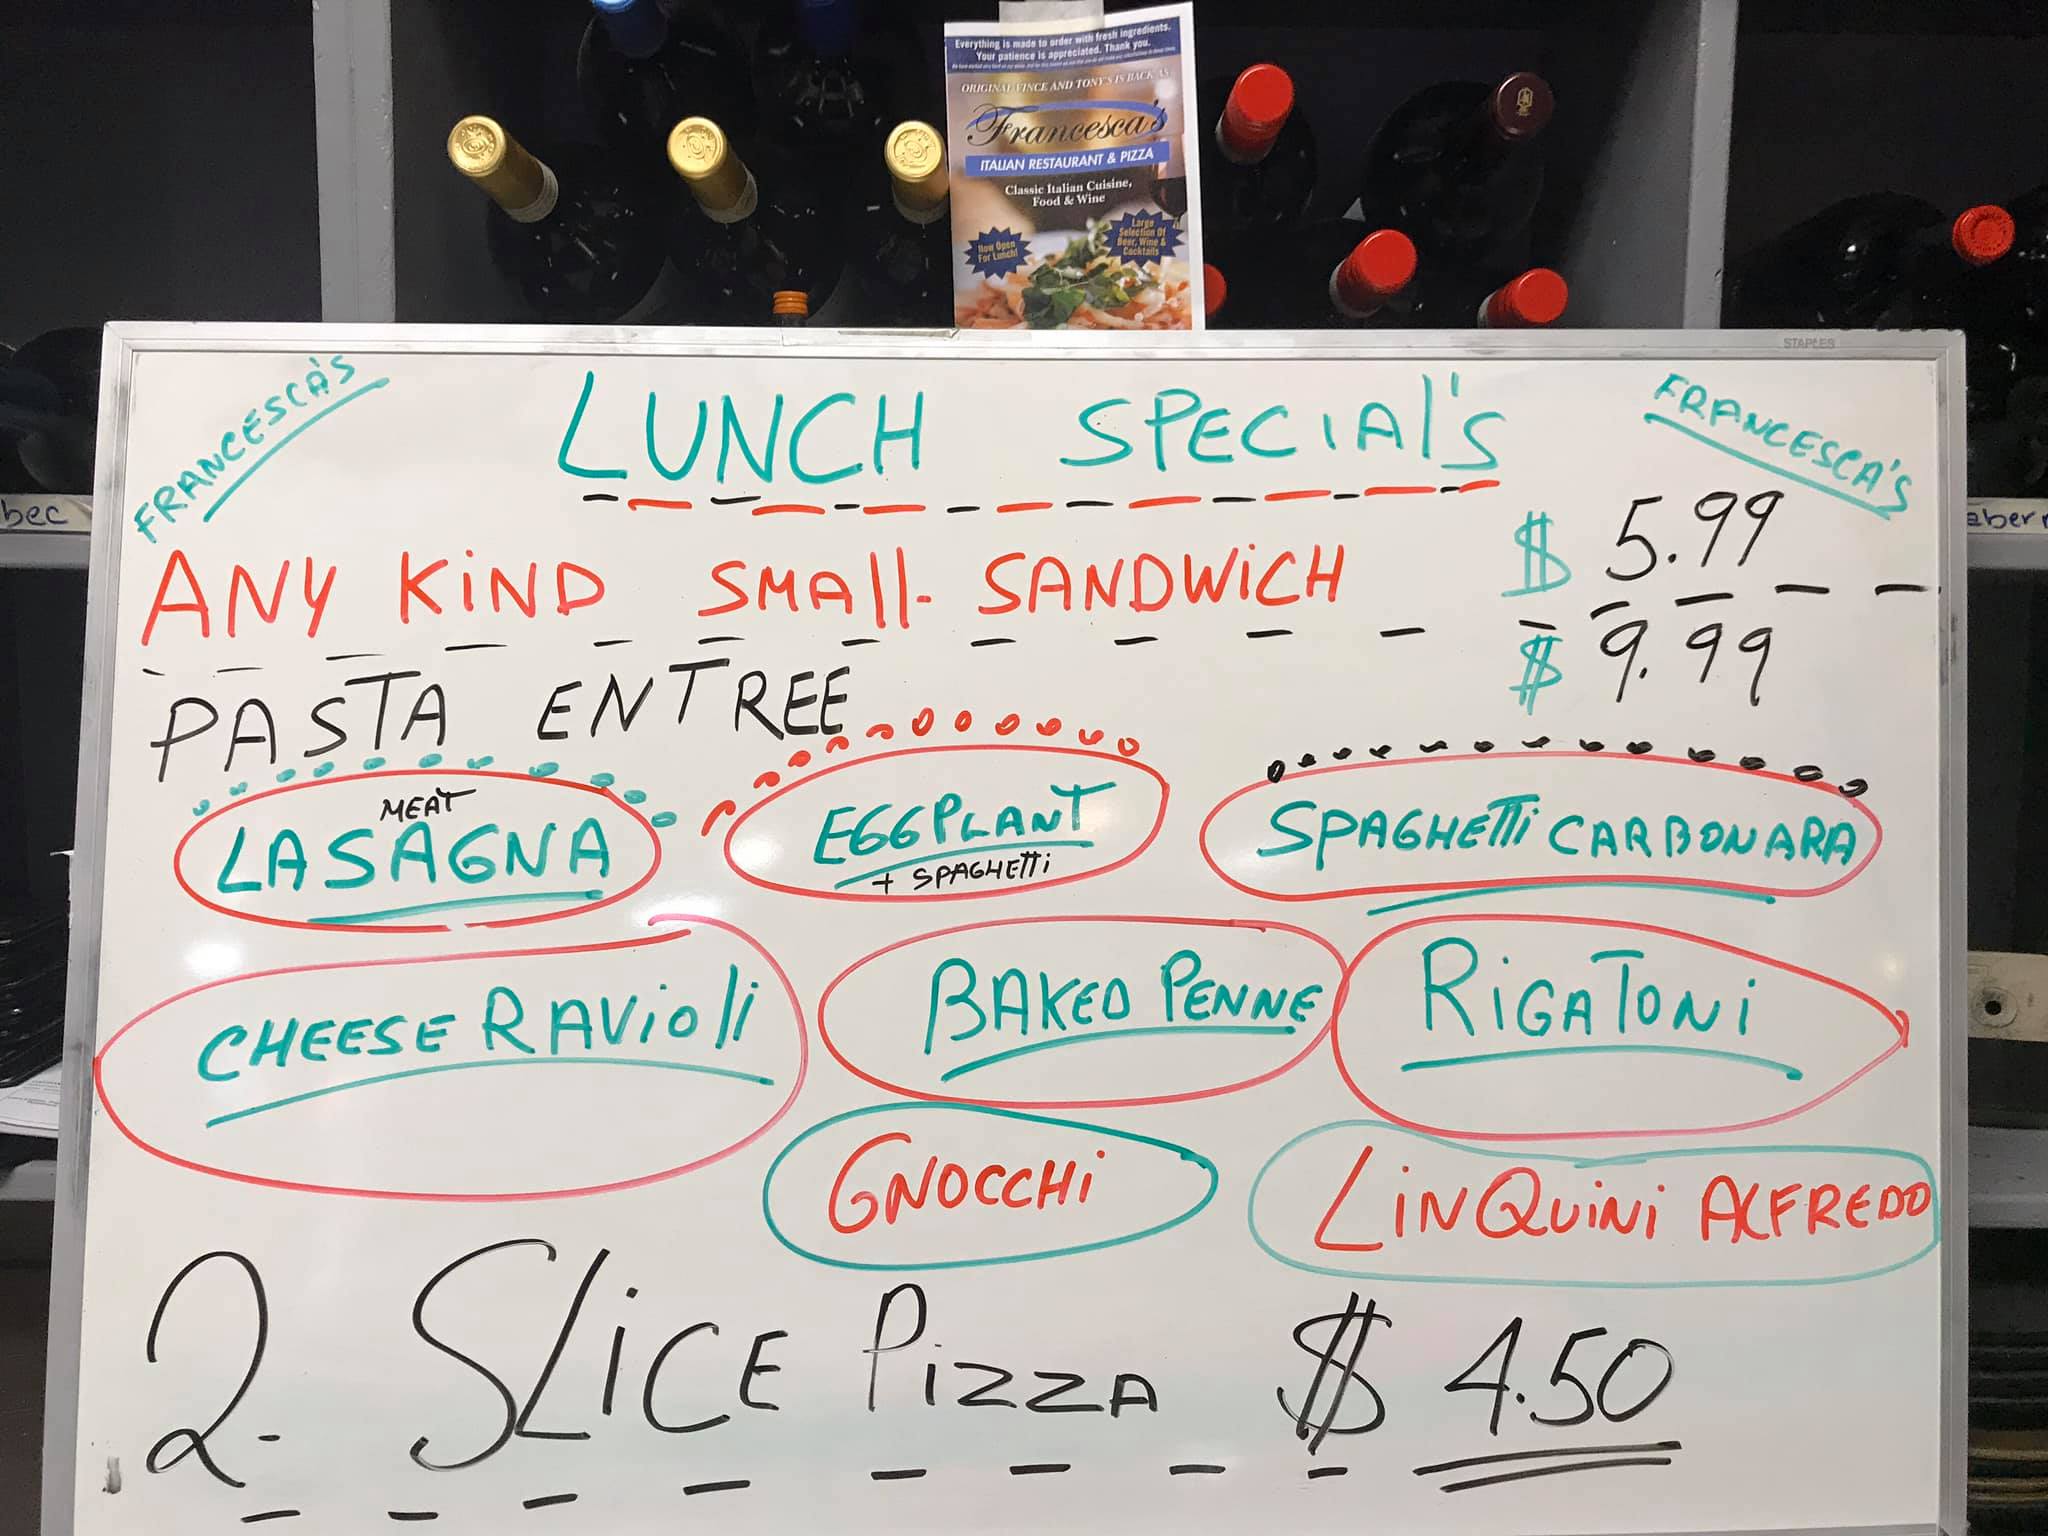 Everything is made to order with fresh ingredients.
Your patience is appreciated. Thank you.
ORIGINAL VINCE AND TONY'S IS BACK AS
Francesca's
ITALIAN RESTAURANT & PIZZA
Classic Italian Cuisine,
Food & Wine
Now Open
For Lunch!
Large
Selection Of
Beer, Wine &
Cocktails
STAPLES
FRANCESCA'S
LUNCH SPECIAL'S
FRANCESCA'S
bec
aber
ANY KIND SMALL- SANDWICH $ 5.99
PASTA ENTREE $ 9.99
MEAT
LASAGNA
EGGPLANT
+ SPAGHETTI
SPAGHETTI CARBONARA
CHEESE RAVIOLI
BAKED PENNE
RIGATONI
GNOCCHI
LINQUINI ALFREDO
2- SLICE PIZZA $ 4.50